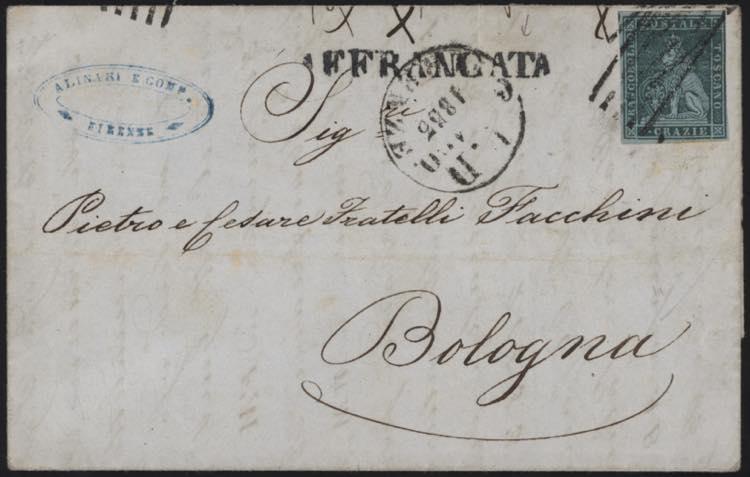 ALINARI E COMP.
FIRENZE
AFFRANCATA
FIRENZE
1855
P. D.
FRANCOBOLLO POSTALE TOSCANO
CRAZIE
Sig
Pietro e Cesare Fratelli Facchini
Bologna